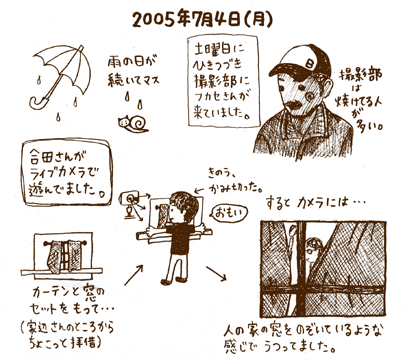 2005年7月4日(月)
雨の日が
続いてマス
土曜日に
ひきつづき
撮影部に
フカセさんが
来ていました。
B
撮影部
は
焼けてる人
が
多い。
合田さんが
ライブカメラで
遊んでました。
きのう、
かみ切った。
おもい
カーテンと窓の
セットをもって…
(家辺さんのところから
ちょこっと拝借)
するとカメラには…
人の家の窓をのぞいているような
感じでうつってました。